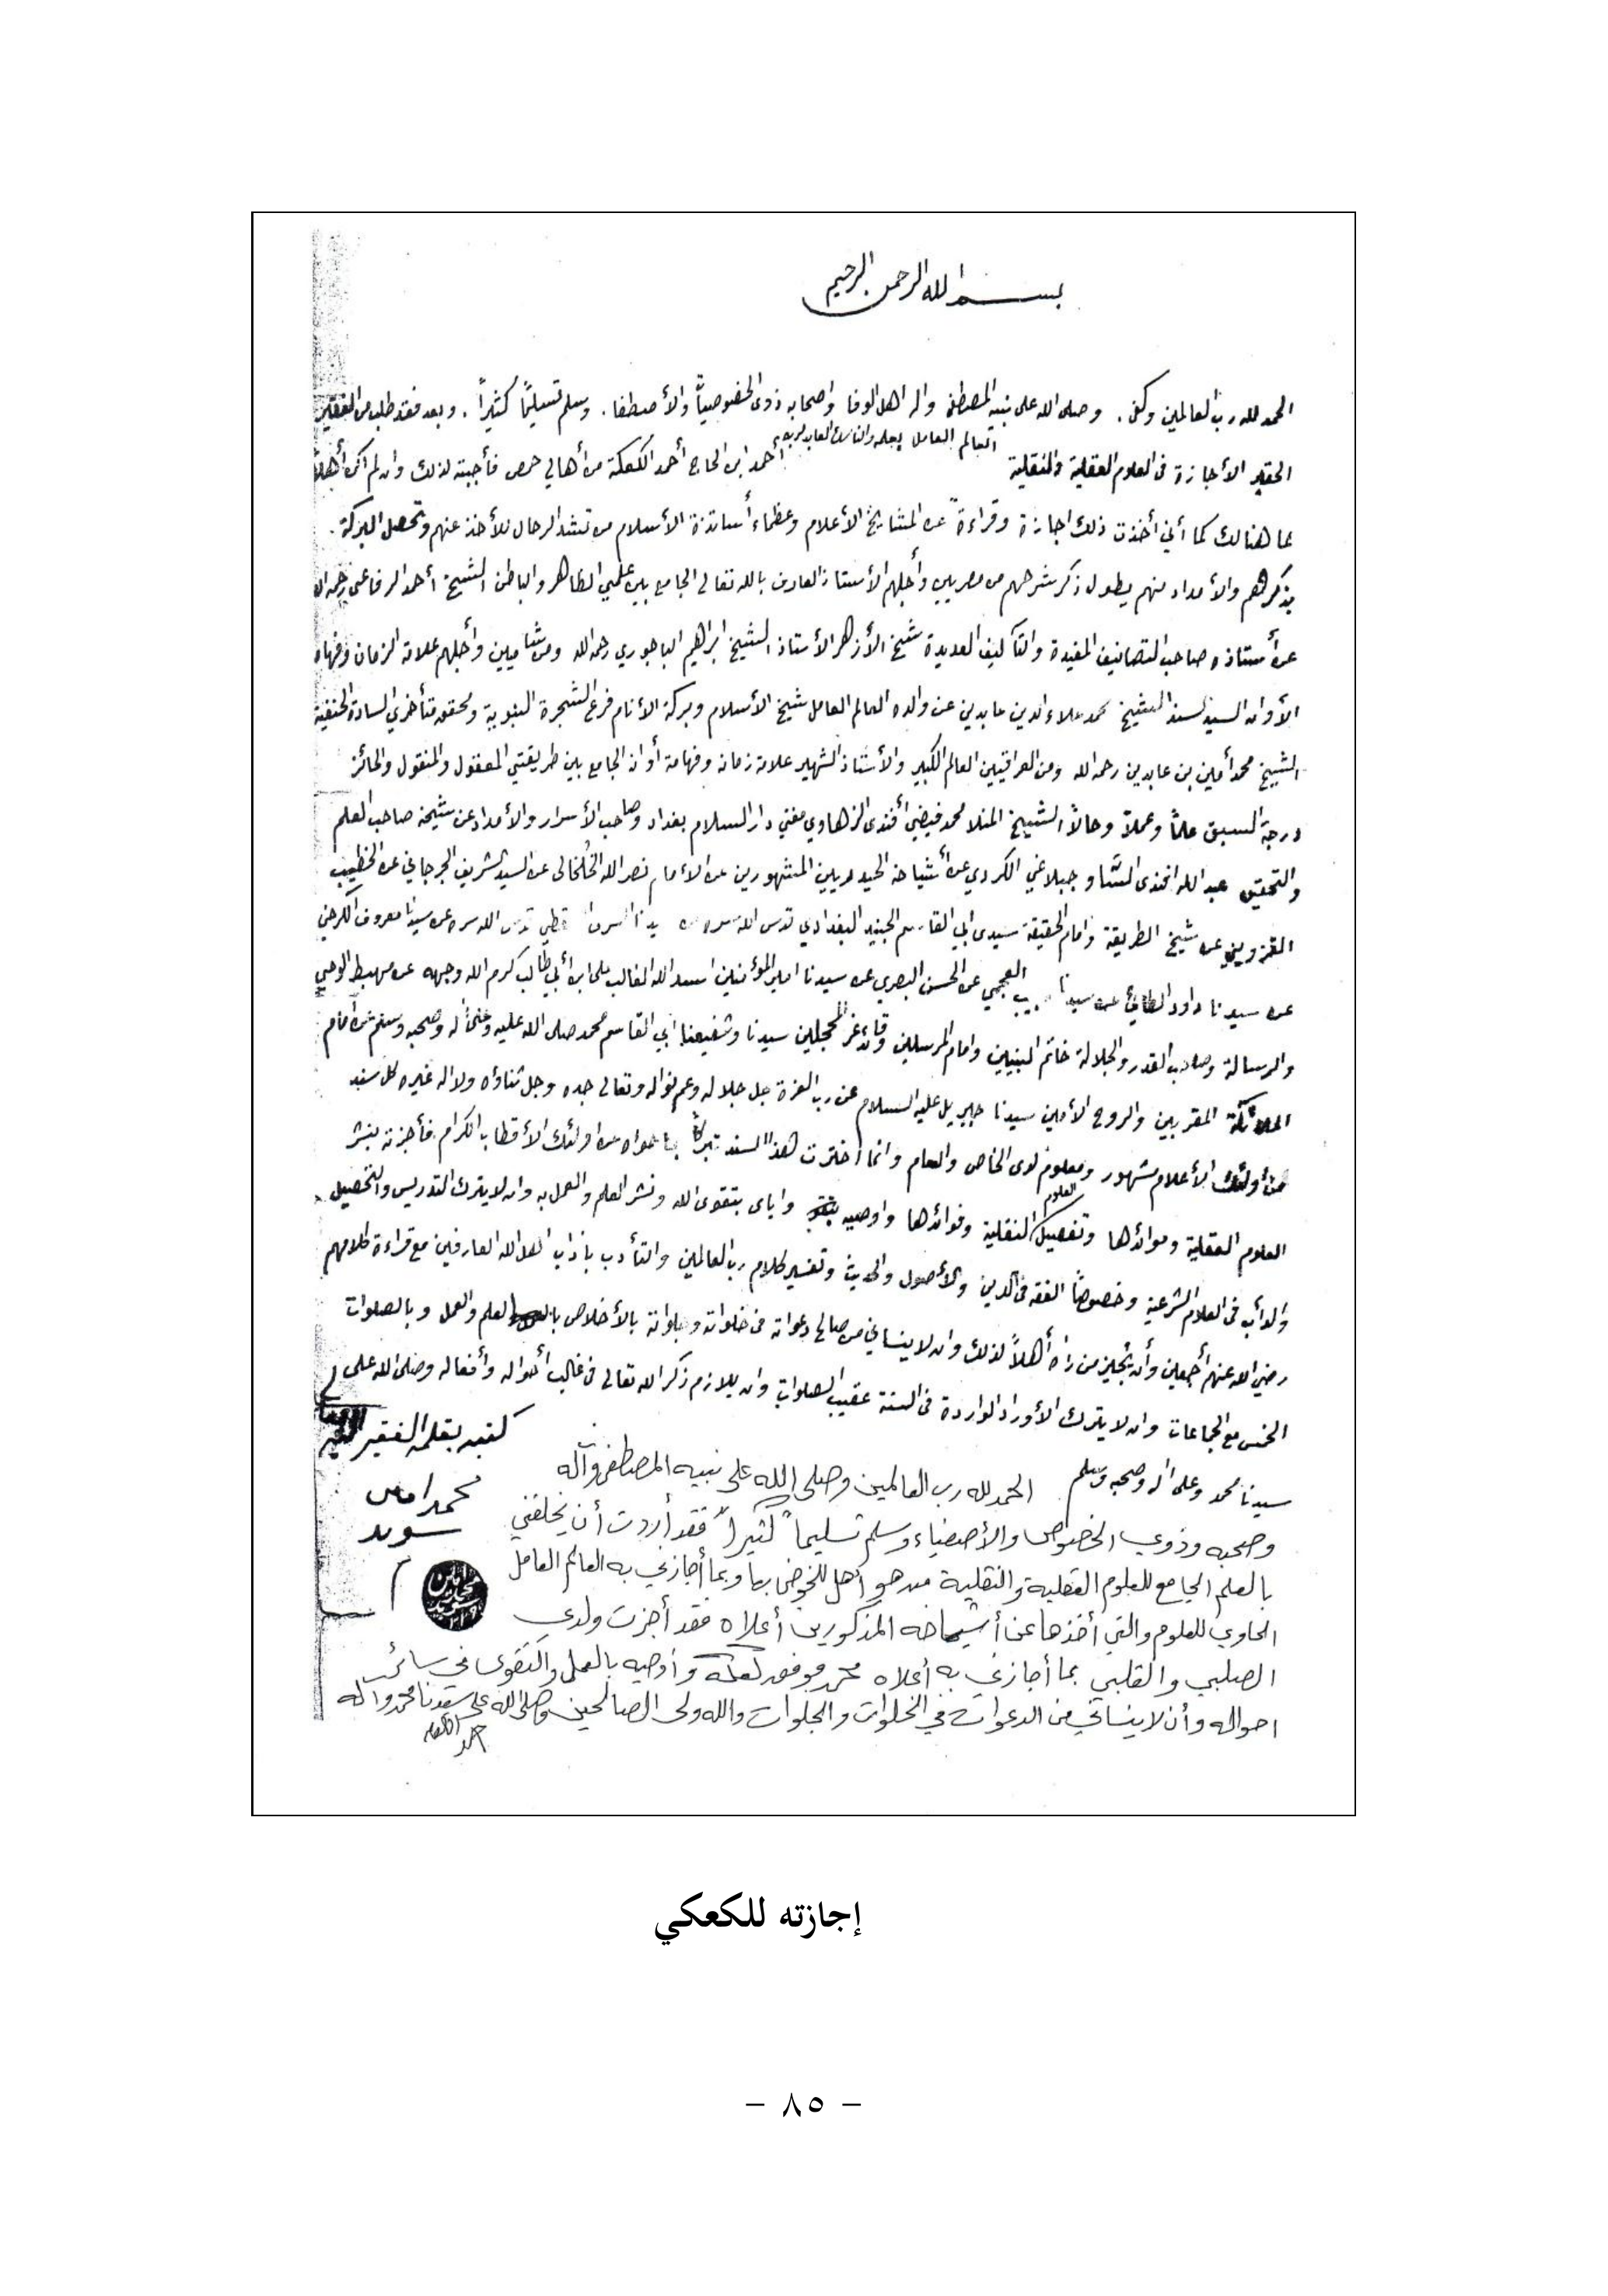 بسم الله الرحمن الرحيم
الحمد لله رب العالمين وكفى . وصلى الله على نبيه المصطفى واله اهل الوفا واصحابه ذوى الخصوصيات والأصطفا . وسلم تسليمًا كثيرًا . وبعد فقد طلب من الفقير
العالم العامل بعلمه والناسك العابد لربه
الحقير الأجازة فى العلوم العقلية والنقلية أحمد ابن الحاج أحمد الكعكة من أهالي حمص فأجبته لذلك وان لم اكن أهلاً
لما هنالك كما أني أخذت ذلك اجازة وقراءة عن المشايخ الأعلام وعظماء أساتذة الأسلام من تشد الرحال للأخذ عنهم وتحصل البركة .
بذكرهم والأمداد منهم يطول ذكر شرحهم من مصريين وأجلهم الأستاذ العارف بالله تعالى الجامع بين علمي الظاهر والباطن الشيخ أحمد الرفاعى رحمه الله
عن أستاذه صاحب التصانيف المفيدة والتآليف العديدة شيخ الأزهر الأستاذ الشيخ ابراهيم الباجوري رحمه الله ومن شاميين وأجلهم علامة الزمان وفهامة
الأوان السيد السند الشيخ محمد علاء الدين عابدين عن والده العالم العامل شيخ الأسلام وبركة الأنام فرع الشجرة النبوية ومحقق متأخري السادة الحنفية
الشيخ محمد أمين بن عابدين رحمه الله ومن العراقيين العالم الكبير والأستاذ الشهير علامة زمانه وفهامة أوانه الجامع بين طريقتي المعقول والمنقول والحائز
درجة السبق علمًا وعملاً وحالاً الشيخ المنلا محمد فيضي أفندى الزهاوي مفتي دار السلام بغداد وصاحب الأسرار والأمداد عن شيخه صاحب العلم
والتحقيق عبد الله افندى الكردي عن أشياخه الحيدريين المشهورين عن الأمام نصر الله الخلخالى عن السيد الشريف الجرجاني عن الخطيب
القزويني عن شيخ الطريقة وامام الحقيقة سيدى ابي القاسم الجنيد البغدادي قدس الله سره عن سيدنا السري السقطي قدس الله سره عن سيدنا معروف الكرخي
عن سيدنا داود الطائي عن سيدنا حبيب العجمي عن الحسن البصري عن سيدنا امير المؤمنين اسد الله الغالب على ابن أبي طالب كرم الله وجهه عن مهبط الوحي
والرسالة وصاحب القدر والجلالة خاتم النبيين وامام المرسلين وقائد غر المحجلين سيدنا وشفيعنا ابي القاسم محمد صلى الله عليه وعلى أله وصحبه وسلم عن أمام
الملائكة المقربين والروح الأمين سيدنا جبريل عليه السلام عن رب العزة جل جلاله وعم نواله وتعالى جده وجل ثناؤه ولا اله غيره كل سند
من أولئك الأعلام مشهور ومعلوم لدى الخاص والعام وانما اخترت هذا السند تبركًا بما حواه من اولئك الأقطاب الكرام فأجزته بنشر
العلوم العقلية وموائدها وتفصيل العلوم النقلية وفوائدها واوصيه واياى بتقوى الله ونشر العلم والعمل به وان لا يترك التدريس والتحصيل
والدأب فى العلوم الشرعية وخصوصًا الفقه فى الدين والأصول والحديث وتفسير كلام رب العالمين والتأدب بأداب اهل الله العارفين مع قراءة كلامهم
رضي الله عنهم أجمعين وأن يجيز من رأه أهلاً لذلك وان لا ينساني من صالح دعواته فى خلواته وجلواته بالأخلاص بالعلم والعمل وبالصلوات
الخمس مع الجماعات وان لا يترك الأوراد الواردة فى السنة عقيب الصلوات وان يلازم ذكر الله تعالى فى غالب أحواله وأفعاله وصلى الله على
سيدنا محمد وعلى أله وصحبه وسلم
كتبه بقلمه الفقير
محمد امين
سويد
محمد امين
سويد
الحمد لله رب العالمين وصلى الله على نبيه المصطفى وآله
وصحبه وذوي الخصوص والأصفياء وسلم تسليماً كثيراً فقد أردت أن يخلفني
بالعلم الجامع للعلوم العقلية والنقلية من هو أهل للخوض بها وبما أجازني به العالم العامل
الحاوي للعلوم والتي أخذها عن أشياخه المذكورين أعلاه فقد أجزت ولدى
الصلبي والقلبي بما أجازني به أعلاه محمد موفق لعكه وأوصيه بالعمل والتقوى في سائر
احواله وأن لا ينساني من الدعوات في الخلوات والجلوات والله ولي الصالحين وصلى الله على سيدنا محمد وآله
احمد الكعكه
إجازته للكعكي
- ٨٥ -